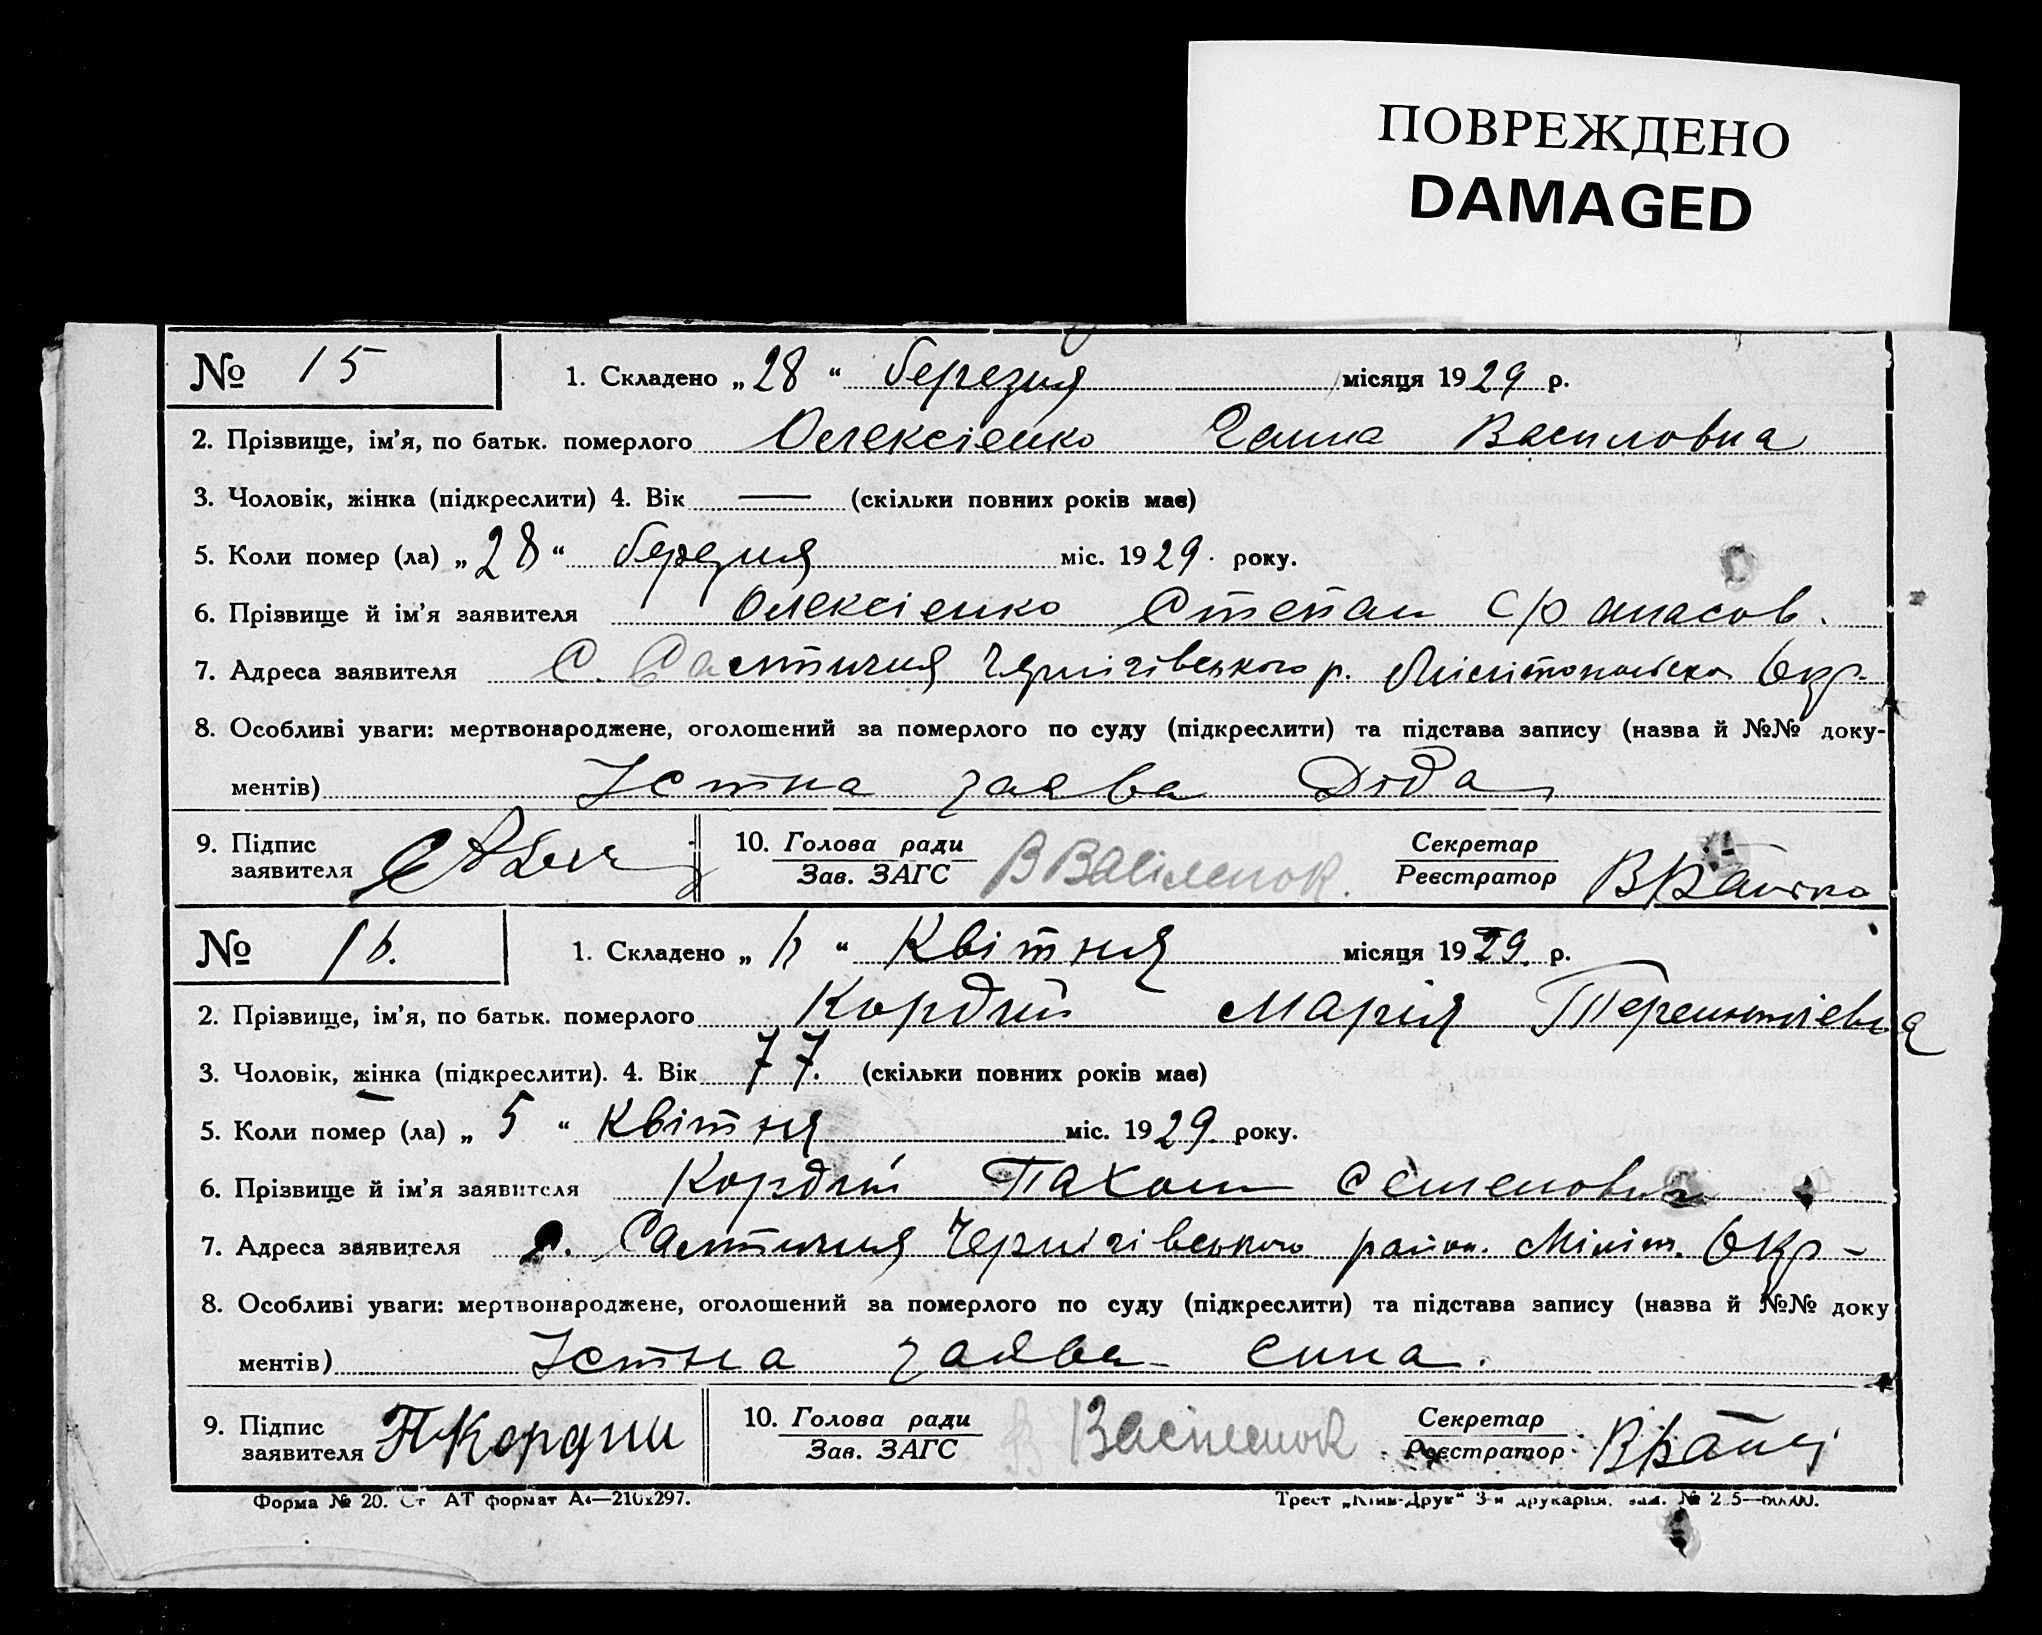 ПОВРЕЖДЕНО
DAMAGED
№ 15
1. Складено „28“ березня місяця 1929 р.
2. Прізвище, ім’я, по батьк. померлого Олексієнко Ганна Василовна
3. Чоловік, жінка (підкреслити) 4. Вік — (скільки повних років має)
5. Коли помер (ла) „28“ березня міс. 1929 року.
6. Прізвище й ім’я заявителя Олексієнко Степан
7. Адреса заявителя С. Салтичия Чернігівського р. Окр.
8. Особливі уваги: мертвонароджене, оголошений за померлого по суду (підкреслити) та підстава запису (назва й №№ доку-
ментів) Істна заява Діда
9. Підпис заявителя
10. Голова ради
Зав. ЗАГС
Секретар
Реєстратор
№ 16.
1. Складено „ “ Квітня місяця 1929. р.
2. Прізвище, ім’я, по батьк. померлого Кордий Марія Терентиевна
3. Чоловік, жінка (підкреслити). 4. Вік 77. (скільки повних років має)
5. Коли помер (ла) „5“ Квітня міс. 1929 року.
6. Прізвище й ім’я заявителя Кордий Пахом Семенович
7. Адреса заявителя с. Салтичия Чернігівського район. Окр-
8. Особливі уваги: мертвонароджене, оголошений за померлого по суду (підкреслити) та підстава запису (назва й №№ доку
ментів) Істна заява сина.
9. Підпис заявителя П Кордии
10. Голова ради
Зав. ЗАГС
Секретар
Реєстратор
Форма № 20. Ст АТ формат А4—210x297.
Трест „Київ-Друк“ 3-я друкарня.